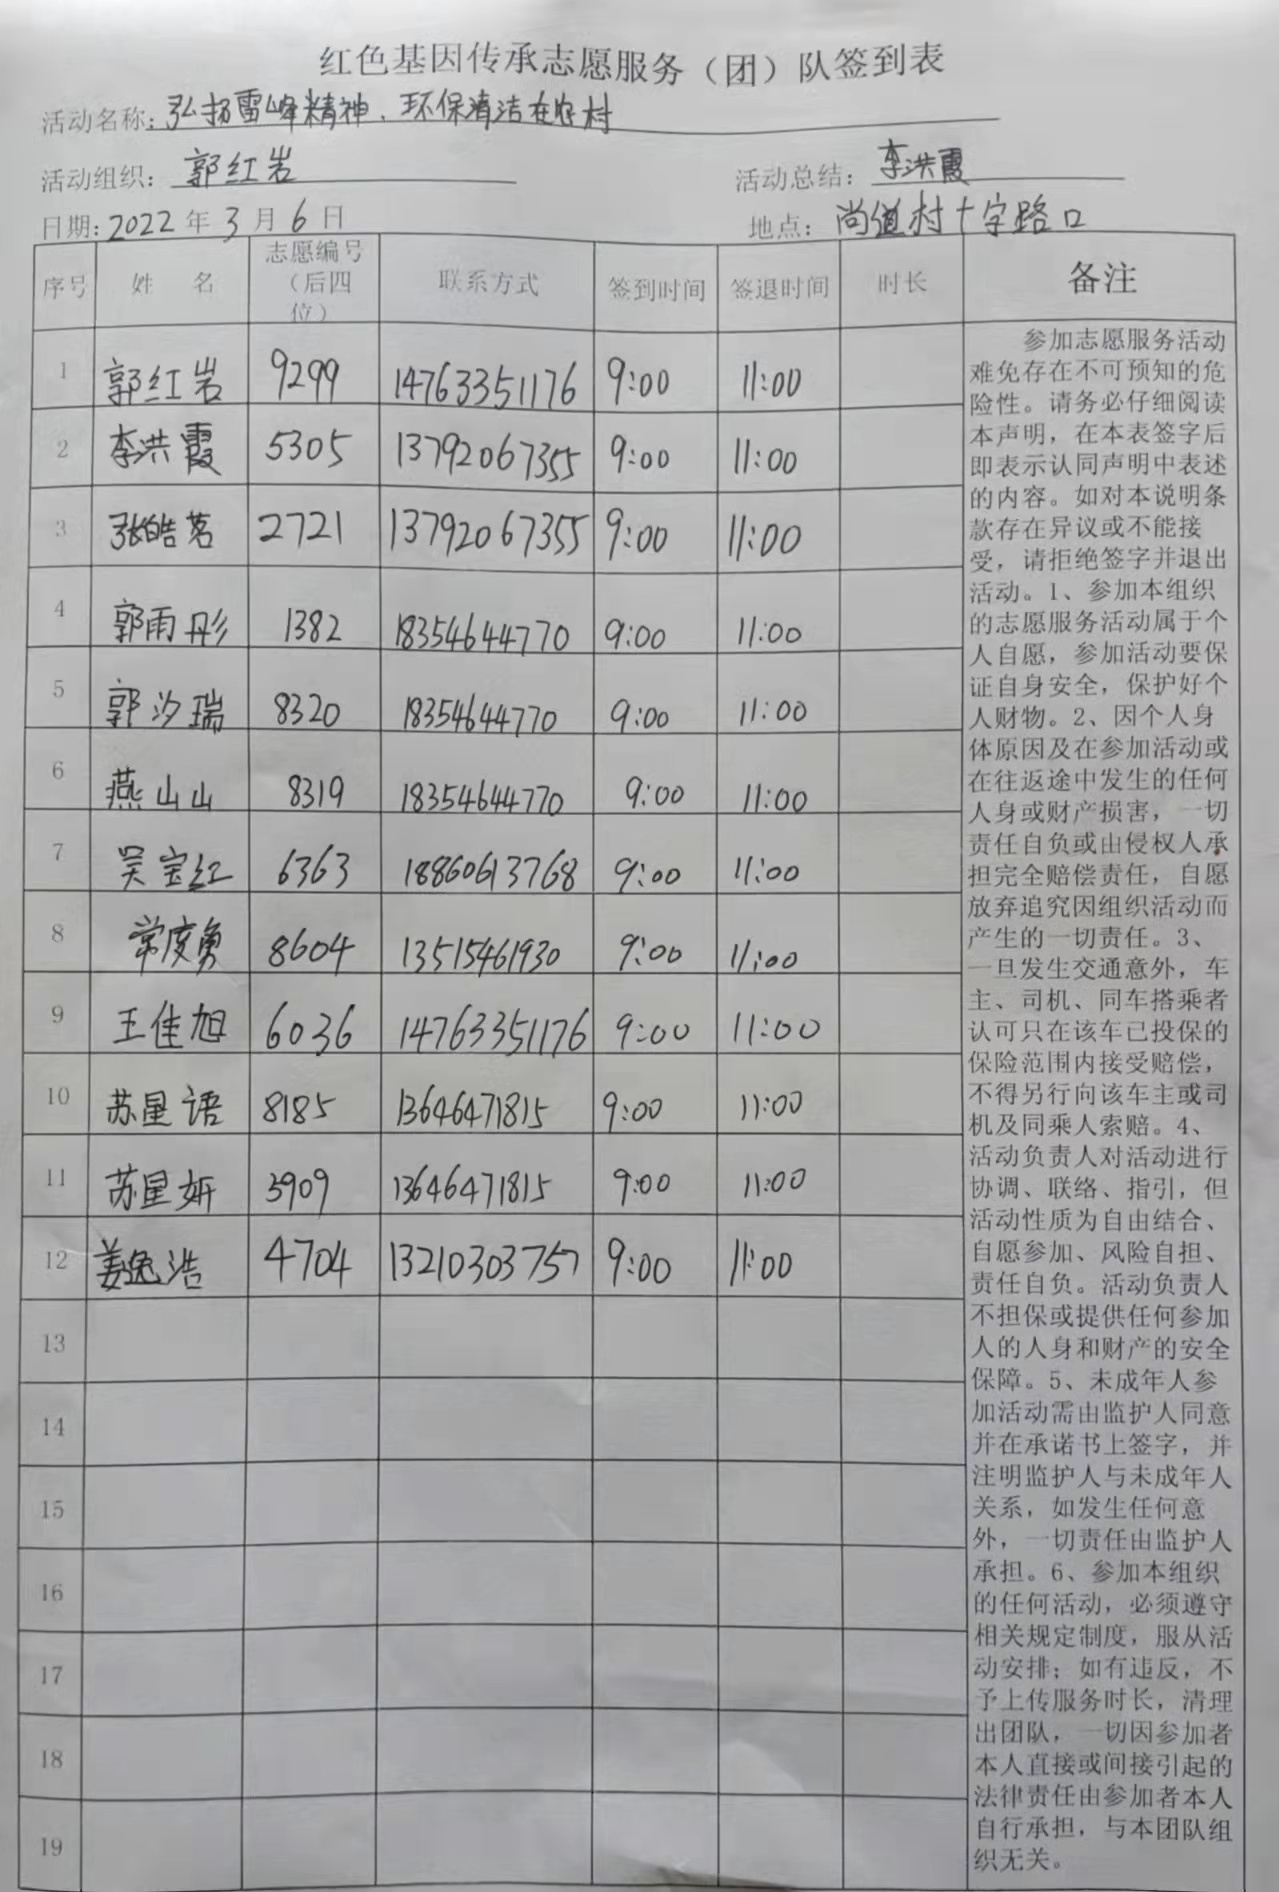 红色基因传承志愿服务（团）队签到表
活动名称：弘扬雷峰精神．环保清洁在农村
活动组织：郭红岩 活动总结：李洪霞
日期：2022年3月6日 地点：尚道村十字路口
序号 姓 名 志愿编号（后四位） 联系方式 签到时间 签退时间 时长 备注
1 郭红岩 9299 14763351176 9:00 11:00
2 李洪霞 5305 13792067355 9:00 11:00
3 张皓茗 2721 13792067355 9:00 11:00
4 郭雨彤 1382 18354644770 9:00 11:00
5 郭汐瑞 8320 18354644770 9:00 11:00
6 燕山山 8319 18354644770 9:00 11:00
7 吴宝红 6363 18860613768 9:00 11:00
8 常度勇 8604 13515461930 9:00 11:00
9 王佳旭 6036 14763351176 9:00 11:00
10 苏星语 8185 13646471815 9:00 11:00
11 苏星妍 3909 13646471815 9:00 11:00
12 姜逸浩 4704 13210303757 9:00 11:00
13
14
15
16
17
18
19
参加志愿服务活动
难免存在不可预知的危
险性。请务必仔细阅读
本声明，在本表签字后
即表示认同声明中表述
的内容。如对本说明条
款存在异议或不能接
受，请拒绝签字并退出
活动。1、参加本组织
的志愿服务活动属于个
人自愿，参加活动要保
证自身安全，保护好个
人财物。2、因个人身
体原因及在参加活动或
在往返途中发生的任何
人身或财产损害，一切
责任自负或由侵权人承
担完全赔偿责任，自愿
放弃追究因组织活动而
产生的一切责任。3、
一旦发生交通意外，车
主、司机、同车搭乘者
认可只在该车已投保的
保险范围内接受赔偿，
不得另行向该车主或司
机及同乘人索赔。4、
活动负责人对活动进行
协调、联络、指引，但
活动性质为自由结合、
自愿参加、风险自担、
责任自负。活动负责人
不担保或提供任何参加
人的人身和财产的安全
保障。5、未成年人参
加活动需由监护人同意
并在承诺书上签字，并
注明监护人与未成年人
关系，如发生任何意
外，一切责任由监护人
承担。6、参加本组织
的任何活动，必须遵守
相关规定制度，服从活
动安排；如有违反，不
予上传服务时长，清理
出团队，一切因参加者
本人直接或间接引起的
法律责任由参加者本人
自行承担，与本团队组
织无关。